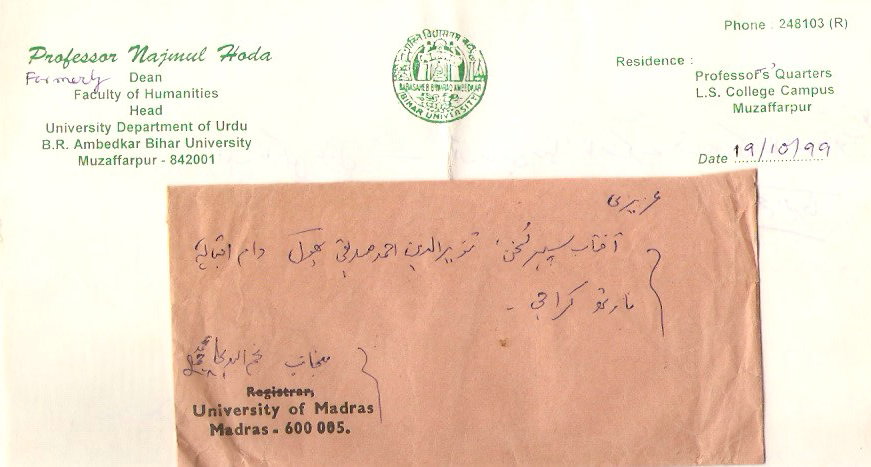 Professor Najmul Hoda
Formerly Dean
Faculty of Humanities
Head
University Department of Urdu
B.R. Ambedkar Bihar University
Muzaffarpur - 842001
BABASAHEB BHIMRAO AMBEDKAR
BIHAR UNIVERSITY
Phone : 248103 (R)
Residence :
Professor's Quarters
L.S. College Campus
Muzaffarpur
Date 19/10/99
عزیزی
آفتاب سپہر سخن، تنویر الدین احمد صدیقی پھول دام اقبالہٗ
نارتھ کراچی -
منجانب نجم الہدیٰ
Registrar,
University of Madras
Madras - 600 005.